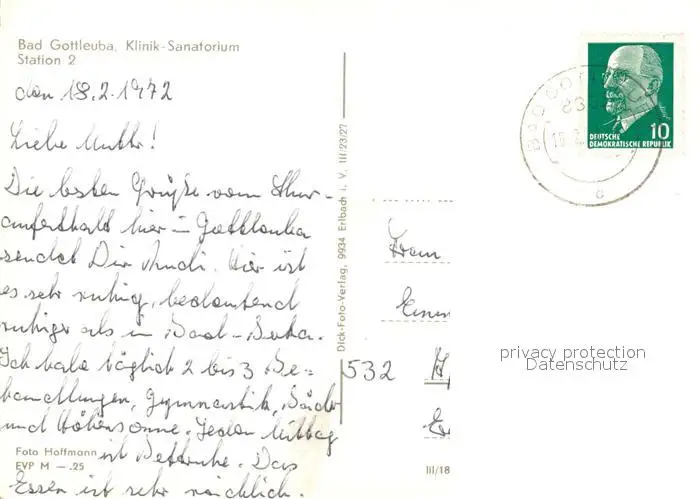 Bad Gottleuba, Klinik-Sanatorium
Station 2
den 18.2.1972
Liebe Mutti!
Die besten Grüße vom Kur-
aufenthalt hier in Gottleuba
sendet Dir Rudi. Hier ist
es sehr ruhig, bedeutend
ruhiger als in Bad-Berka.
Ich habe täglich 2 bis 3 Be=
handlungen, Gymnastik, Bäder
und Höhensonne. Jeden Mittag
ist Bettruhe. Das
Essen ist sehr reichlich.
Foto Hoffmann
EVP M —.25
Dick-Foto-Verlag, 9934 Erlbach i. V. III/23/27
III/18
DEUTSCHE
DEMOKRATISCHE REPUBLIK
10
BAD GOTT
Frau
532
privacy protection
Datenschutz